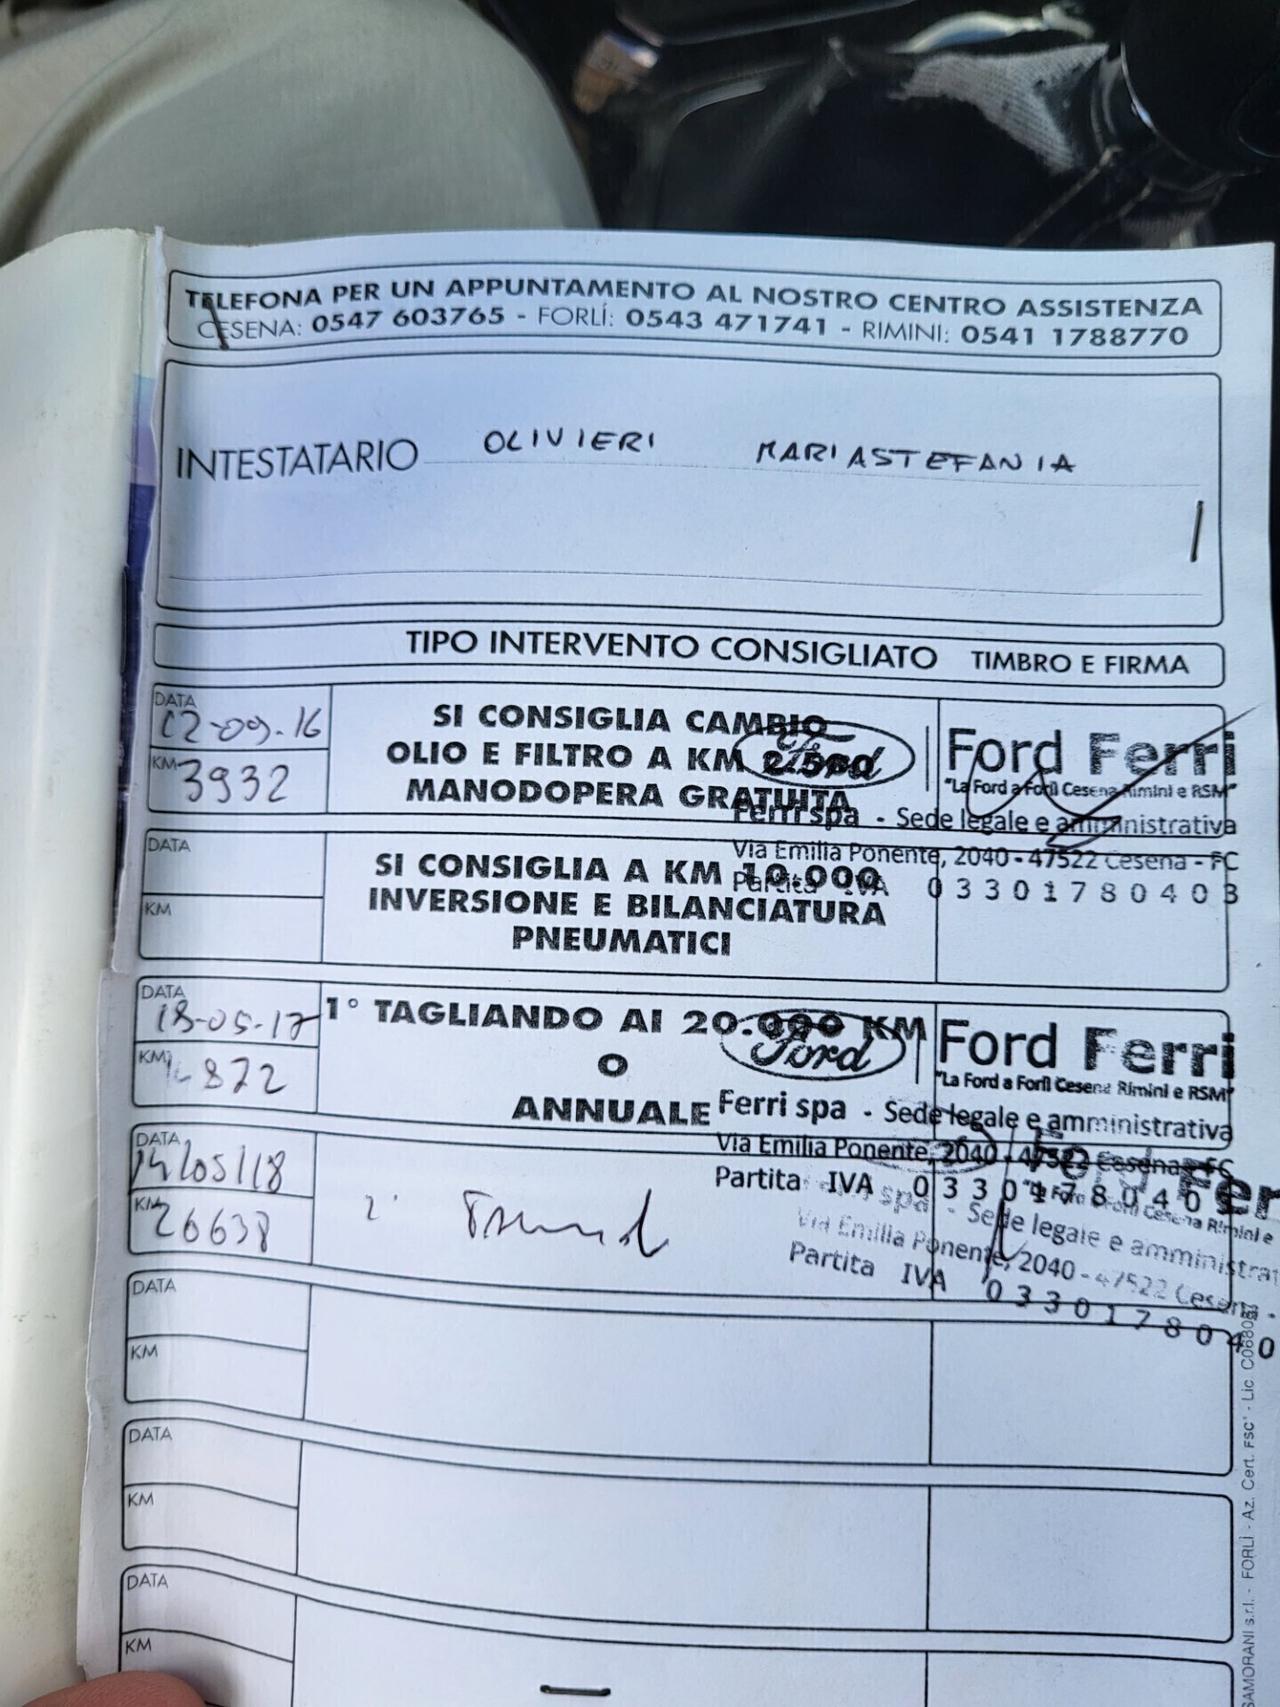 TELEFONA PER UN APPUNTAMENTO AL NOSTRO CENTRO ASSISTENZA
CESENA: 0547 603765 - FORLÌ: 0543 471741 - RIMINI: 0541 1788770
INTESTATARIO OLIVIERI MARIASTEFANIA
TIPO INTERVENTO CONSIGLIATO TIMBRO E FIRMA
DATA
12-09-16
KM 3932
SI CONSIGLIA CAMBIO
OLIO E FILTRO A KM 2.500
MANODOPERA GRATUITA
Ford
Ford Ferri
"La Ford a Forlì Cesena Rimini e RSM"
Ferri spa - Sede legale e amministrativa
Via Emilia Ponente, 2040 - 47522 Cesena - FC
Partita IVA 03301780403
DATA
KM
SI CONSIGLIA A KM 10.000
INVERSIONE E BILANCIATURA
PNEUMATICI
DATA
18-05-17
KM 14872
1° TAGLIANDO AI 20.000 KM
O
ANNUALE
Ford
Ford Ferri
"La Ford a Forlì Cesena Rimini e RSM"
Ferri spa - Sede legale e amministrativa
Via Emilia Ponente, 2040 - 47522 Cesena - FC
Partita IVA 0330178040
DATA
14/05/18
KM
26638
2°
Ford Fer
Forlì Cesena Rimini e
spa - Sede legale e amministrat
Via Emilia Ponente, 2040 - 47522 Cesena -
Partita IVA 0330178040
DATA
KM
DATA
KM
DATA
KM
SAMORANI s.r.l. - FORLÌ - Az. Cert. FSC® - Lic. C0680